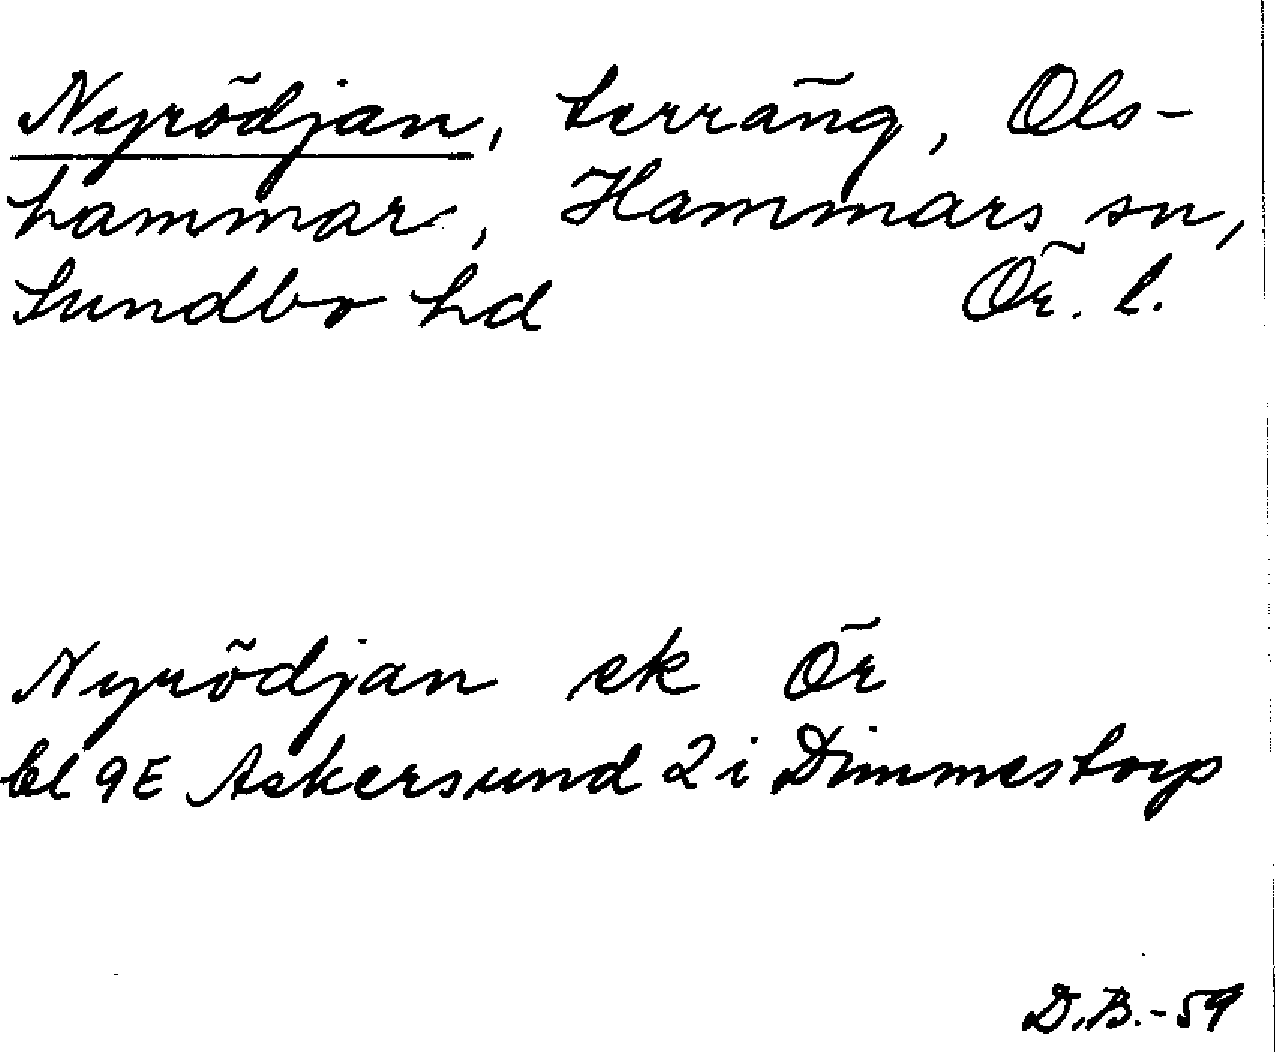 Nyrödjan, terräng, Ols-
hammar, Hammars sn,
Sundbo hd Ör. l.
Nyrödjan ek Ör
bl 9E Askersund 2 i Dimmestorp
D.B.-59